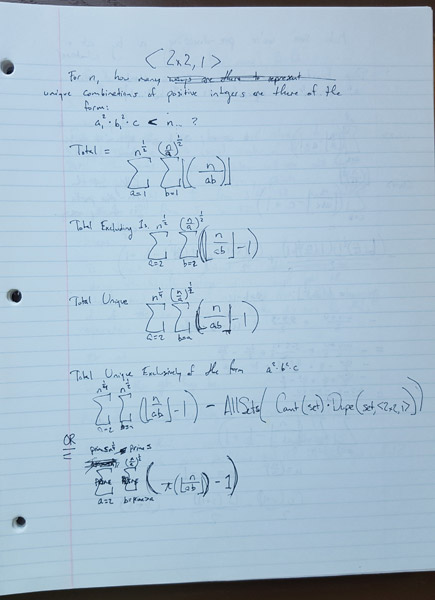 <2x2,1>
For n, how many ways are there to represent
unique combinations of positive integers are there of the
form:
a₁²·b₁²·c < n ... ?
Total = ∑_{a=1}^{n^{1/2}} ∑_{b=1}^{(n/a)^{1/2}} ⌊(n/ab)⌋
Total Excluding 1s ∑_{a=2}^{n^{1/2}} ∑_{b=2}^{(n/a)^{1/2}} (⌊n/ab⌋-1)
Total Unique ∑_{a=2}^{n^{1/4}} ∑_{b=a}^{(n/a)^{1/2}} (⌊n/ab⌋-1)
Total Unique Exclusively of the form a²·b²·c
(⌊n/ab⌋-1) - AllSets(Count(set)·Dupe(set,<2x2,1>))
OR
(π(⌊n/ab⌋)-1)